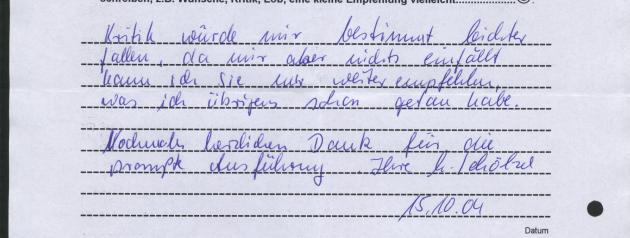 schreiben, z.B. Wünsche, Kritik, Lob, eine kleine Empfehlung vielleicht
Kritik würde mir bestimmt leichter
fallen, da mir aber nichts einfällt
kann ich Sie nur weiterempfehlen,
was ich übrigens schon getan habe.
Nochmals herzlichen Dank für die
prompte Ausführung. Ihre
15.10.04
Datum